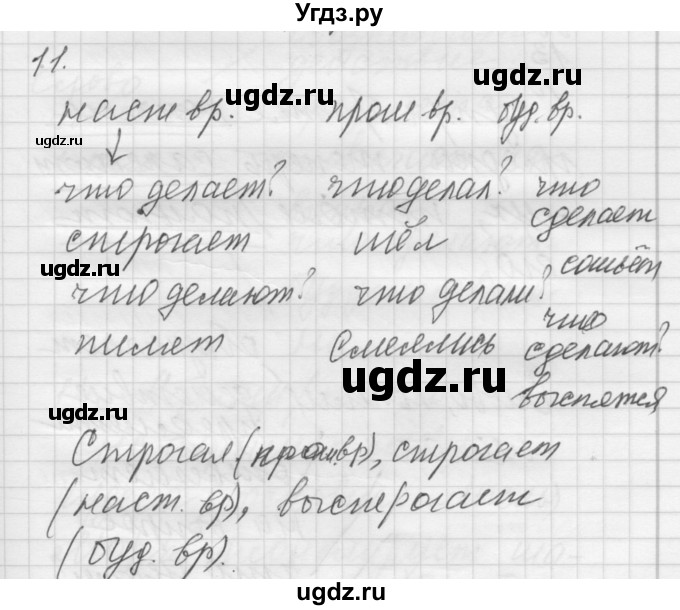 Угдз.ру
11.
наст вр. прош вр. буд. вр.
что делает? что делал? что сделает
строгает шёл сошьёт
что делают? что делали? что сделают?
пилят смеялись выспятся
Строгал (прош. вр), строгает
(наст. вр), выстрогает
(буд. вр).
ugdz.ru
ugdz.ru
ugdz.ru
ugdz.ru
ugdz.ru
ugdz.ru
ugdz.ru
ugdz.ru